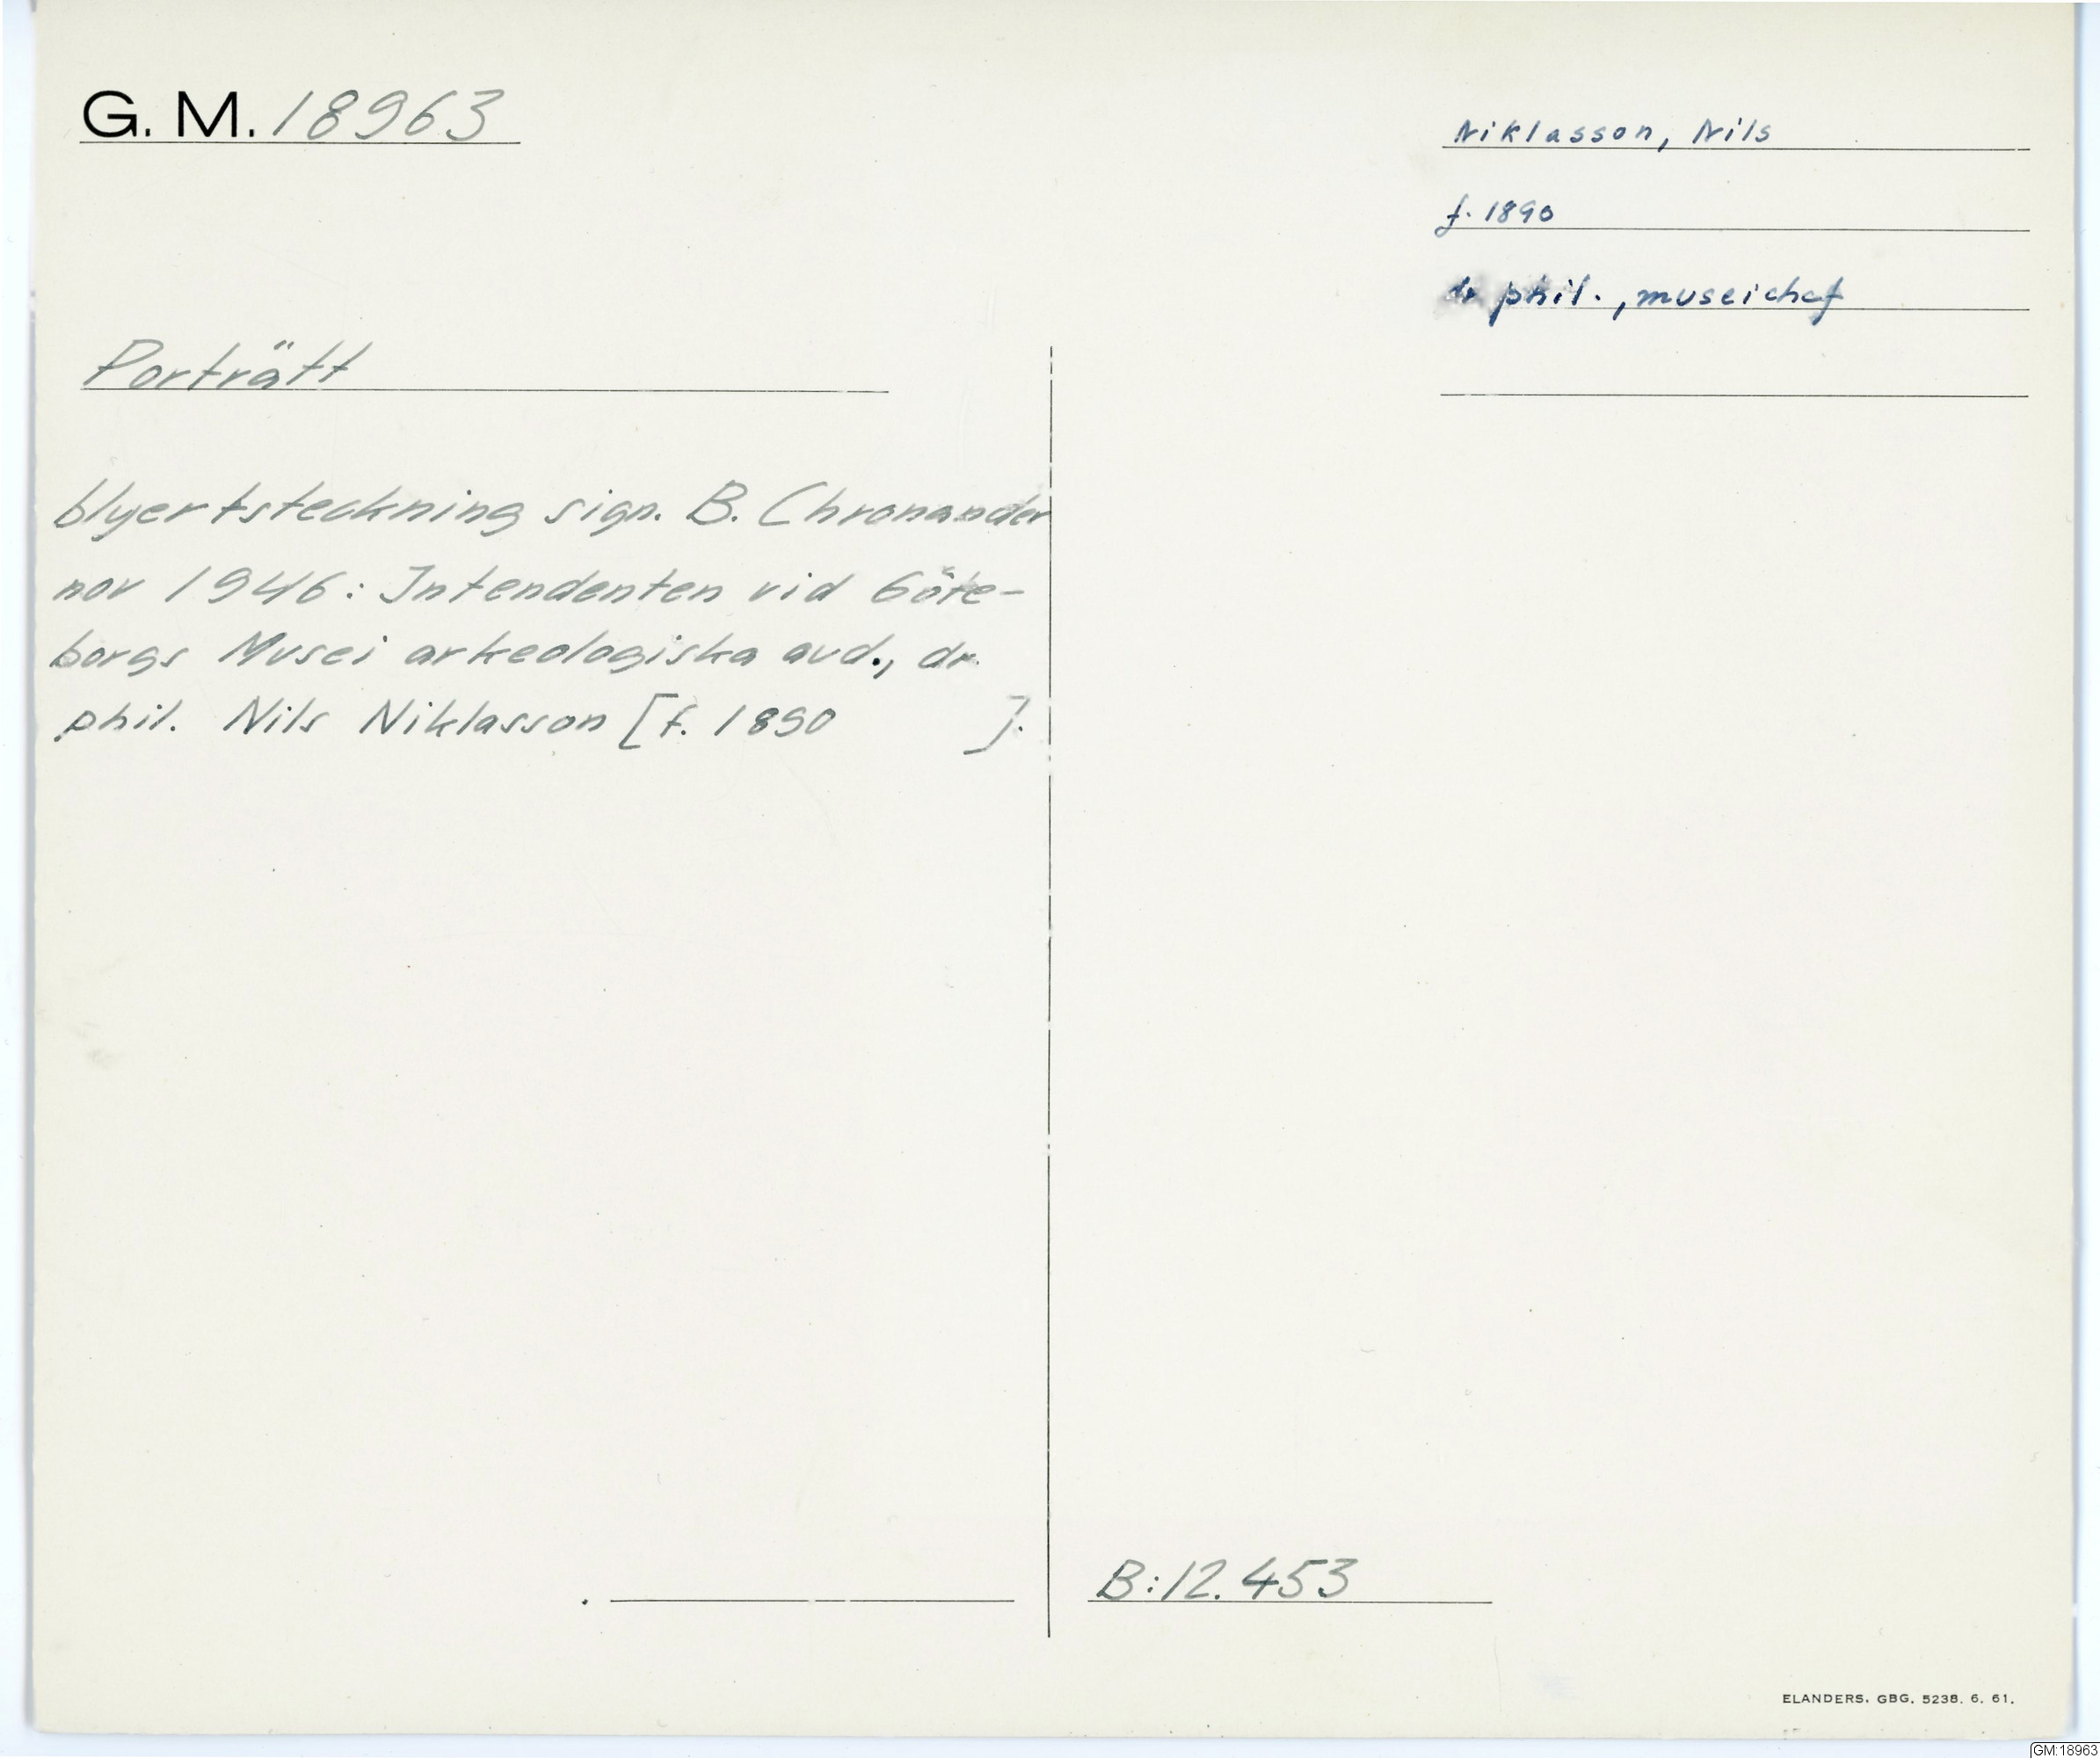 G. M. 18963
Niklasson, Nils
f. 1890
dr phil., museichef
Porträtt
blyertsteckning sign. B. Chronander
nov 1946: Intendenten vid Göte-
borgs Musei arkeologiska avd., dr.
phil. Nils Niklasson [f. 1890 ].
B:12.453
ELANDERS. GBG. 5238. 6. 61.
GM:18963